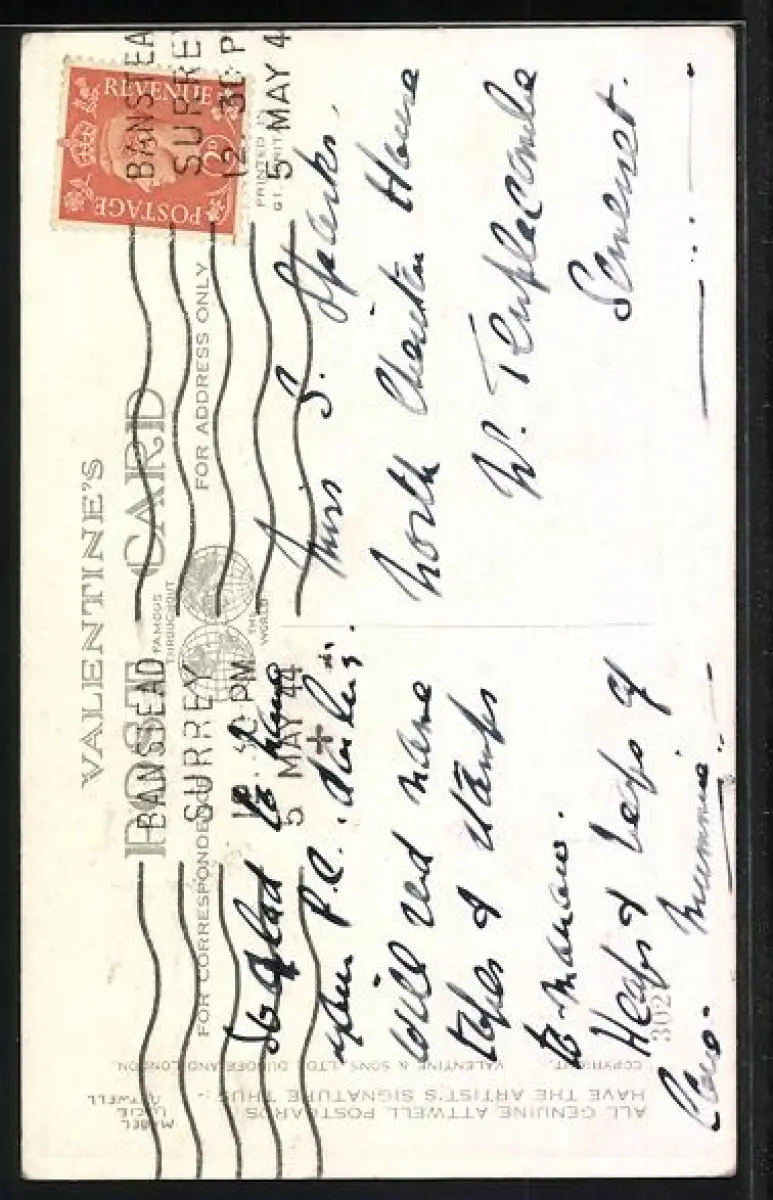 VALENTINE'S
POST CARD
FAMOUS THROUGHOUT
THE WORLD
FOR CORRESPONDENCE
FOR ADDRESS ONLY
PRINTED IN
GT. BRITAIN
REVENUE
POSTAGE
BANSTEAD
SURREY
12.30 PM
5 MAY 44
BANSTEA
SURREY
12.30 P
5 MAY 4
So glad to have
your P.C. darling.
Will send name
tapes & stamps
to-morrow.
Heaps & heaps of
love. Mummie.
Miss S. Sparks,
North Cheriton House
W. Templecombe
Somerset.
302
MABEL
LUCIE
ATTWELL
ALL GENUINE ATTWELL POSTCARDS
HAVE THE ARTIST'S SIGNATURE THUS:-
COPYRIGHT. VALENTINE & SONS, LTD. DUNDEE AND LONDON.